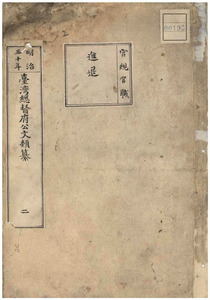 官規官職
進退
明治
三十年
臺灣總督府公文類纂
二